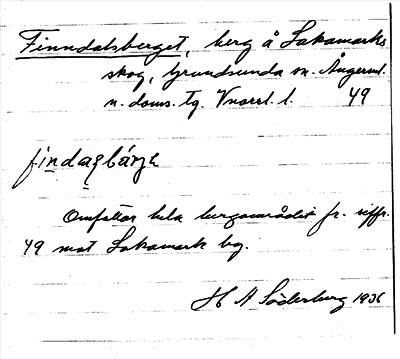 Finndalsberget, berg å Lakamarks
skog, Grundsunda sn. Ångerml.
n. doms. tg. Vnorrl. l. 49
findaɐs̩bárjə
Omfattar hela bergområdet fr. siffr.
49 mot Lakamark by.
H A Söderberg 1936